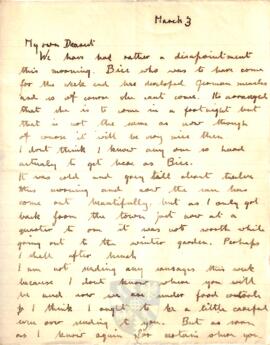 March 3
My own Dearest
We have had rather a disapointment
this morning. Bice who was to have come
for the week end has developed German measles
and so of course she cant come. It's arranged
that she is to come in a fortnight but
that is not the same as now though
of course it will be very nice then
I dont think I know any one so hard
actually to get near as Bice.
It was cold and grey till about twelve
this morning and now the sun has
come out beautifully, but as I only got
back from the town just now at a
quarter to one it was not worth while
going out to the winter garden. Perhaps
I shall after lunch
I am not sending any sausages this week
because I dont know where you will
be and now we are under food controls
so I think I ought to be a little careful
over sending to you. But as soon
as I know again for certain where you